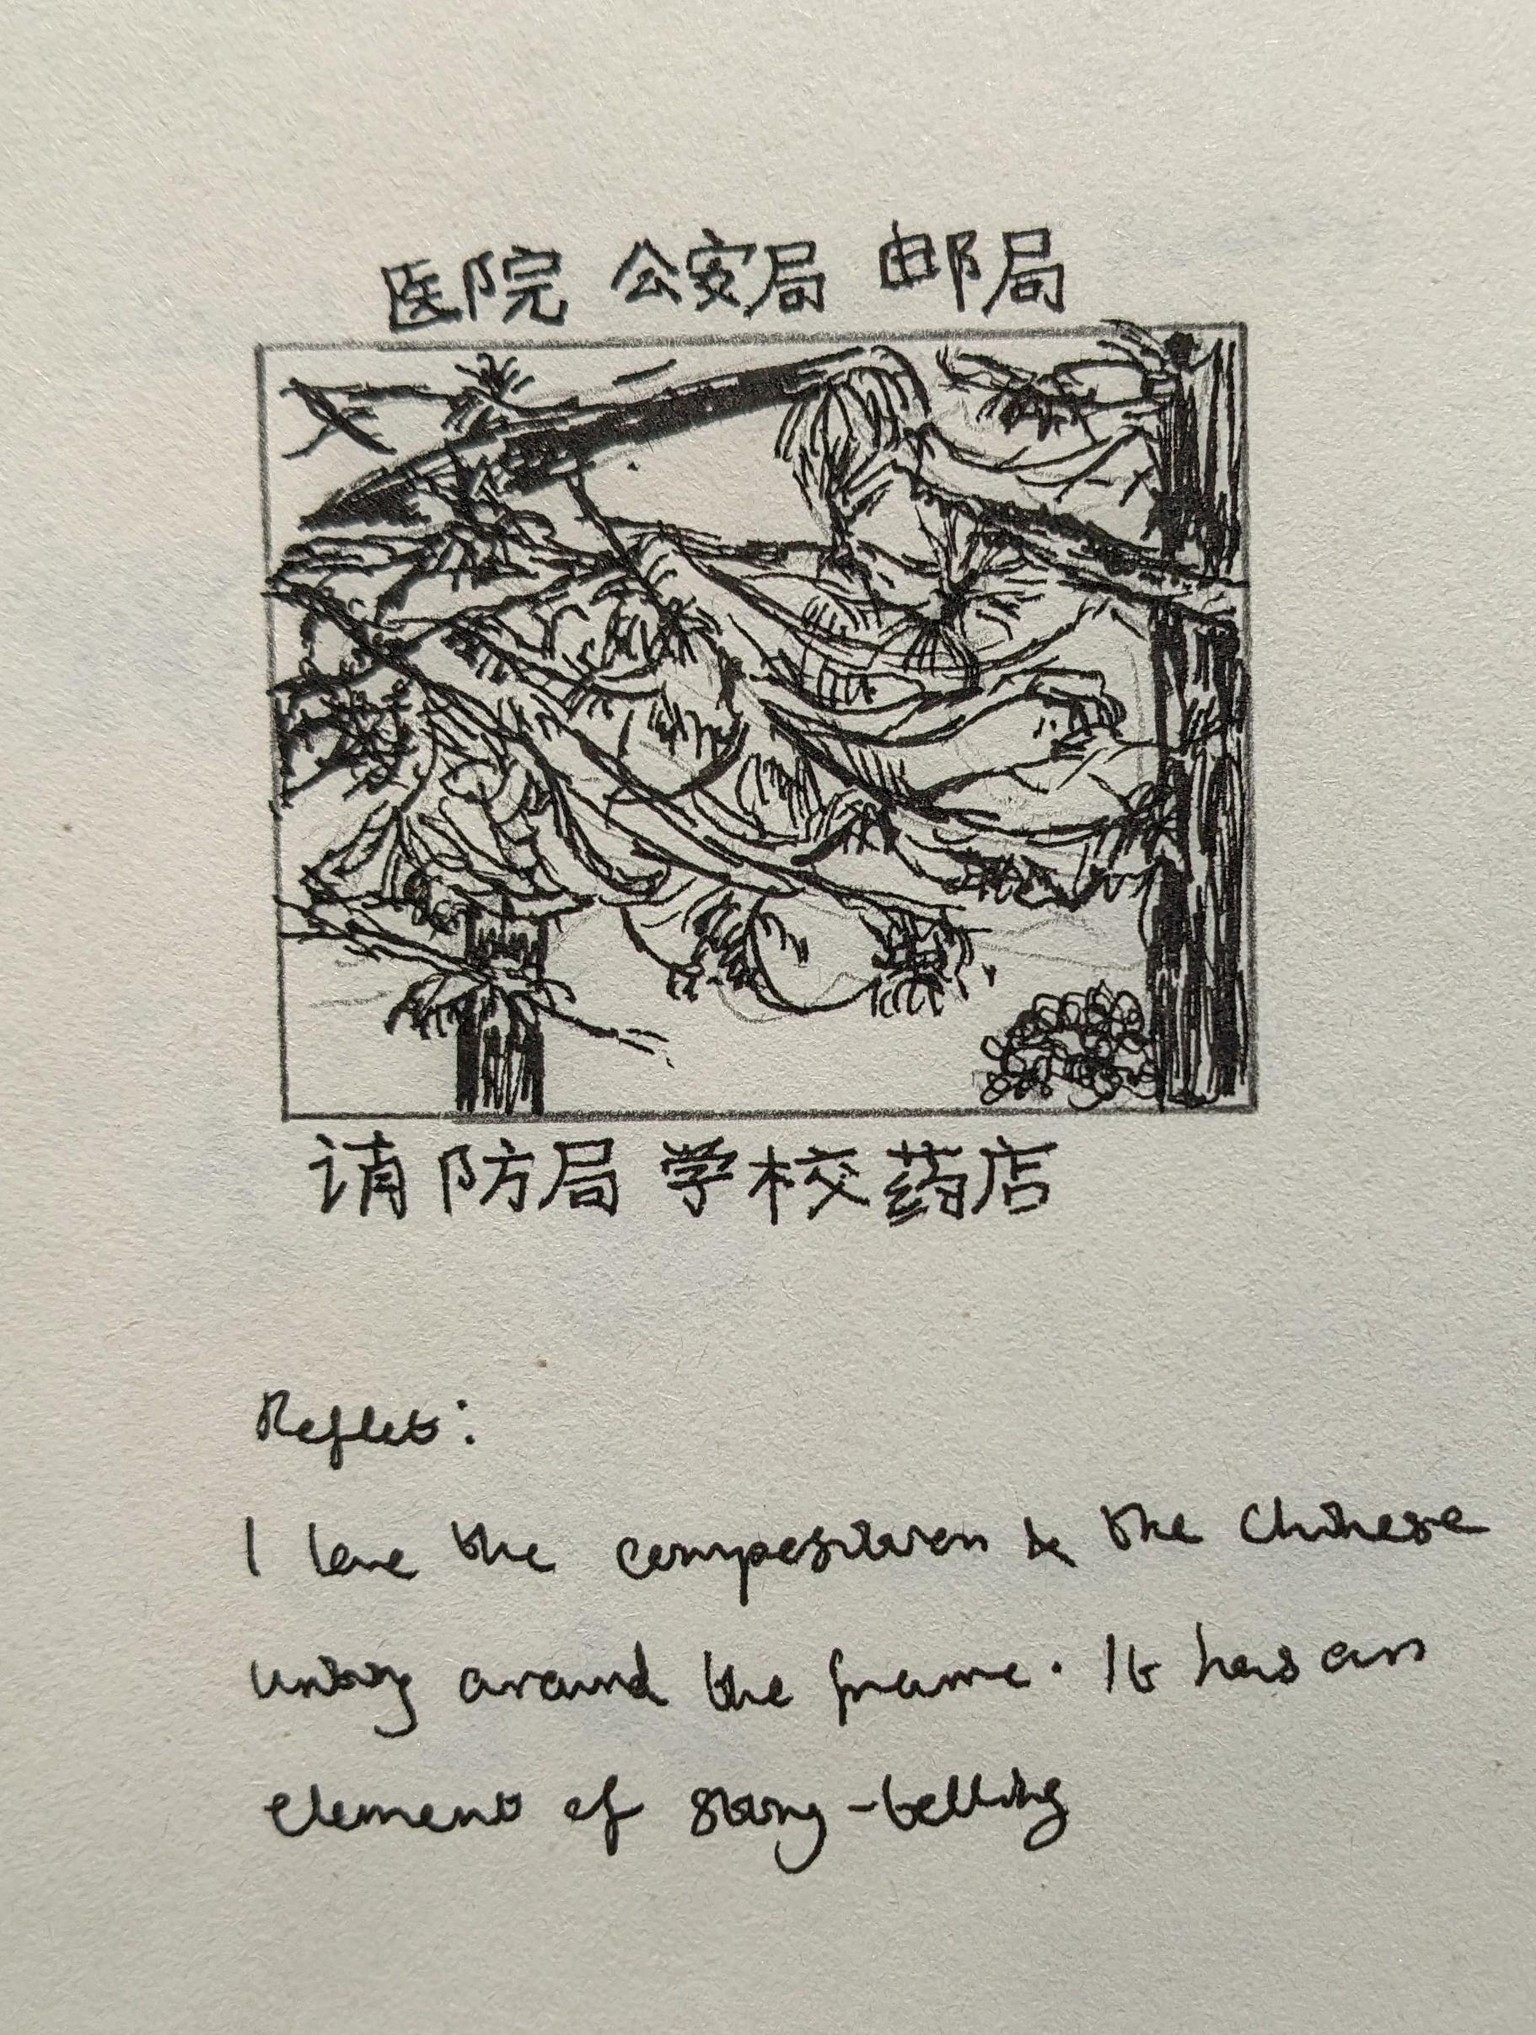 医院 公安局 邮局
诮防局 学校 药店
Reflet:
I love the composition & the Chinese
writing around the frame. It has an
element of story-telling